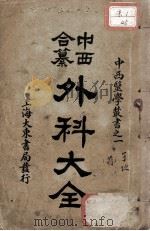 中西醫學叢書之一
中西合纂
外科大全
上海大東書局發行